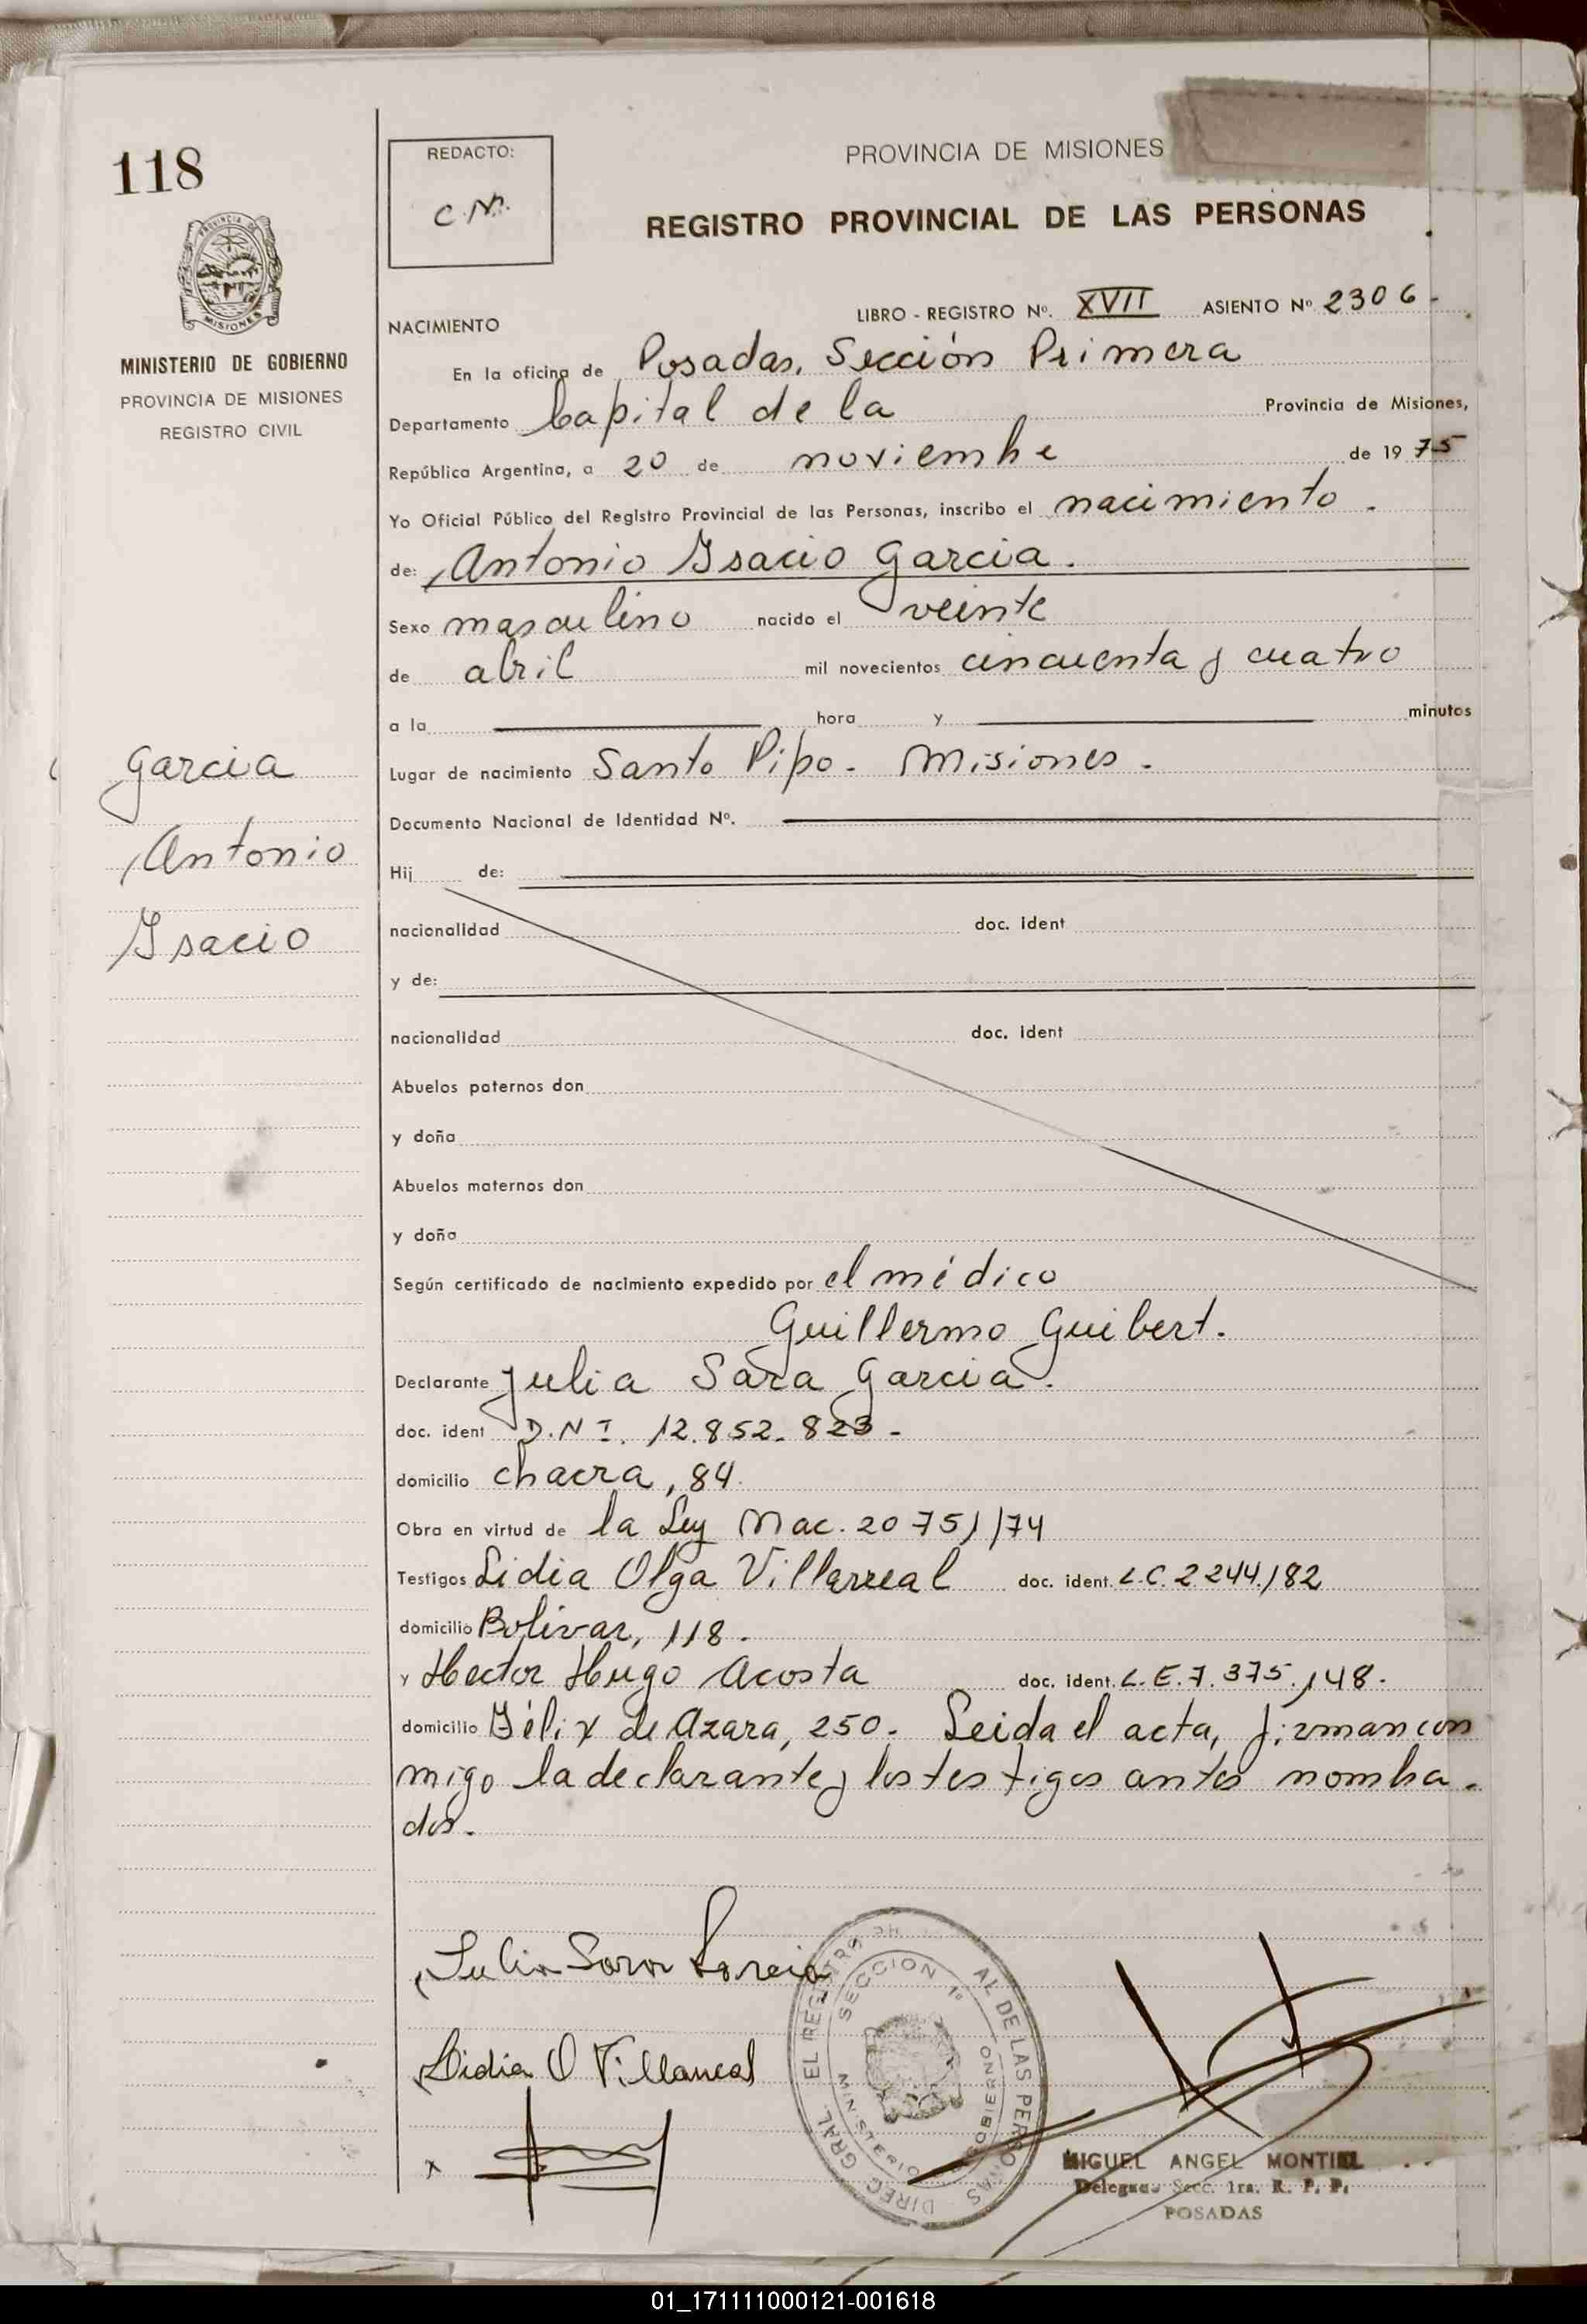 118
REDACTO:
C.M.
PROVINCIA DE MISIONES
REGISTRO PROVINCIAL DE LAS PERSONAS
PROVINCIA DE
MISIONES
MINISTERIO DE GOBIERNO
PROVINCIA DE MISIONES
REGISTRO CIVIL
LIBRO - REGISTRO Nº. XVII ASIENTO Nº 2306-
NACIMIENTO
En la oficina de Posadas, Sección Primera
Departamento Capital de la Provincia de Misiones,
República Argentina, a 20 de noviembre de 1975
Yo Oficial Público del Registro Provincial de las Personas, inscribo el nacimiento.
de: Antonio Isacio Garcia.
Sexo masculino nacido el veinte
de abril mil novecientos cincuenta y cuatro
a la hora y minutos
Garcia
Antonio
Isacio
Lugar de nacimiento Santo Pipo. Misiones.
Documento Nacional de Identidad Nº.
Hij de:
nacionalidad doc. ident
y de:
nacionalidad doc. ident
Abuelos paternos don
y doña
Abuelos maternos don
y doña
Según certificado de nacimiento expedido por el médico
Guillermo Guibert.
Declarante Julia Sara Garcia.
doc. ident D.N I. 12.852.823-
domicilio chacra, 84.
Obra en virtud de la Ley Nac. 20751/74
Testigos Lidia Olga Villarreal doc. ident. L.C. 2.244.182
domicilio Bolivar, 118.
y Hector Hugo Acosta doc. ident. L.E. 7.375.148.
domicilio Félix de Azara, 250. Leida el acta, firman con
migo la declarante y los testigos antes nombra-
dos.
Julia Sara Garcia
Lidia O Villarreal
x
DIREC. GRAL. EL REGISTRO AL DE LAS PERSONAS
SECCION 1º
MINISTERIO GOBIERNO
MIGUEL ANGEL MONTIEL
Delegado Secc. 1ra. R. P. P.
POSADAS
01_171111000121-001618